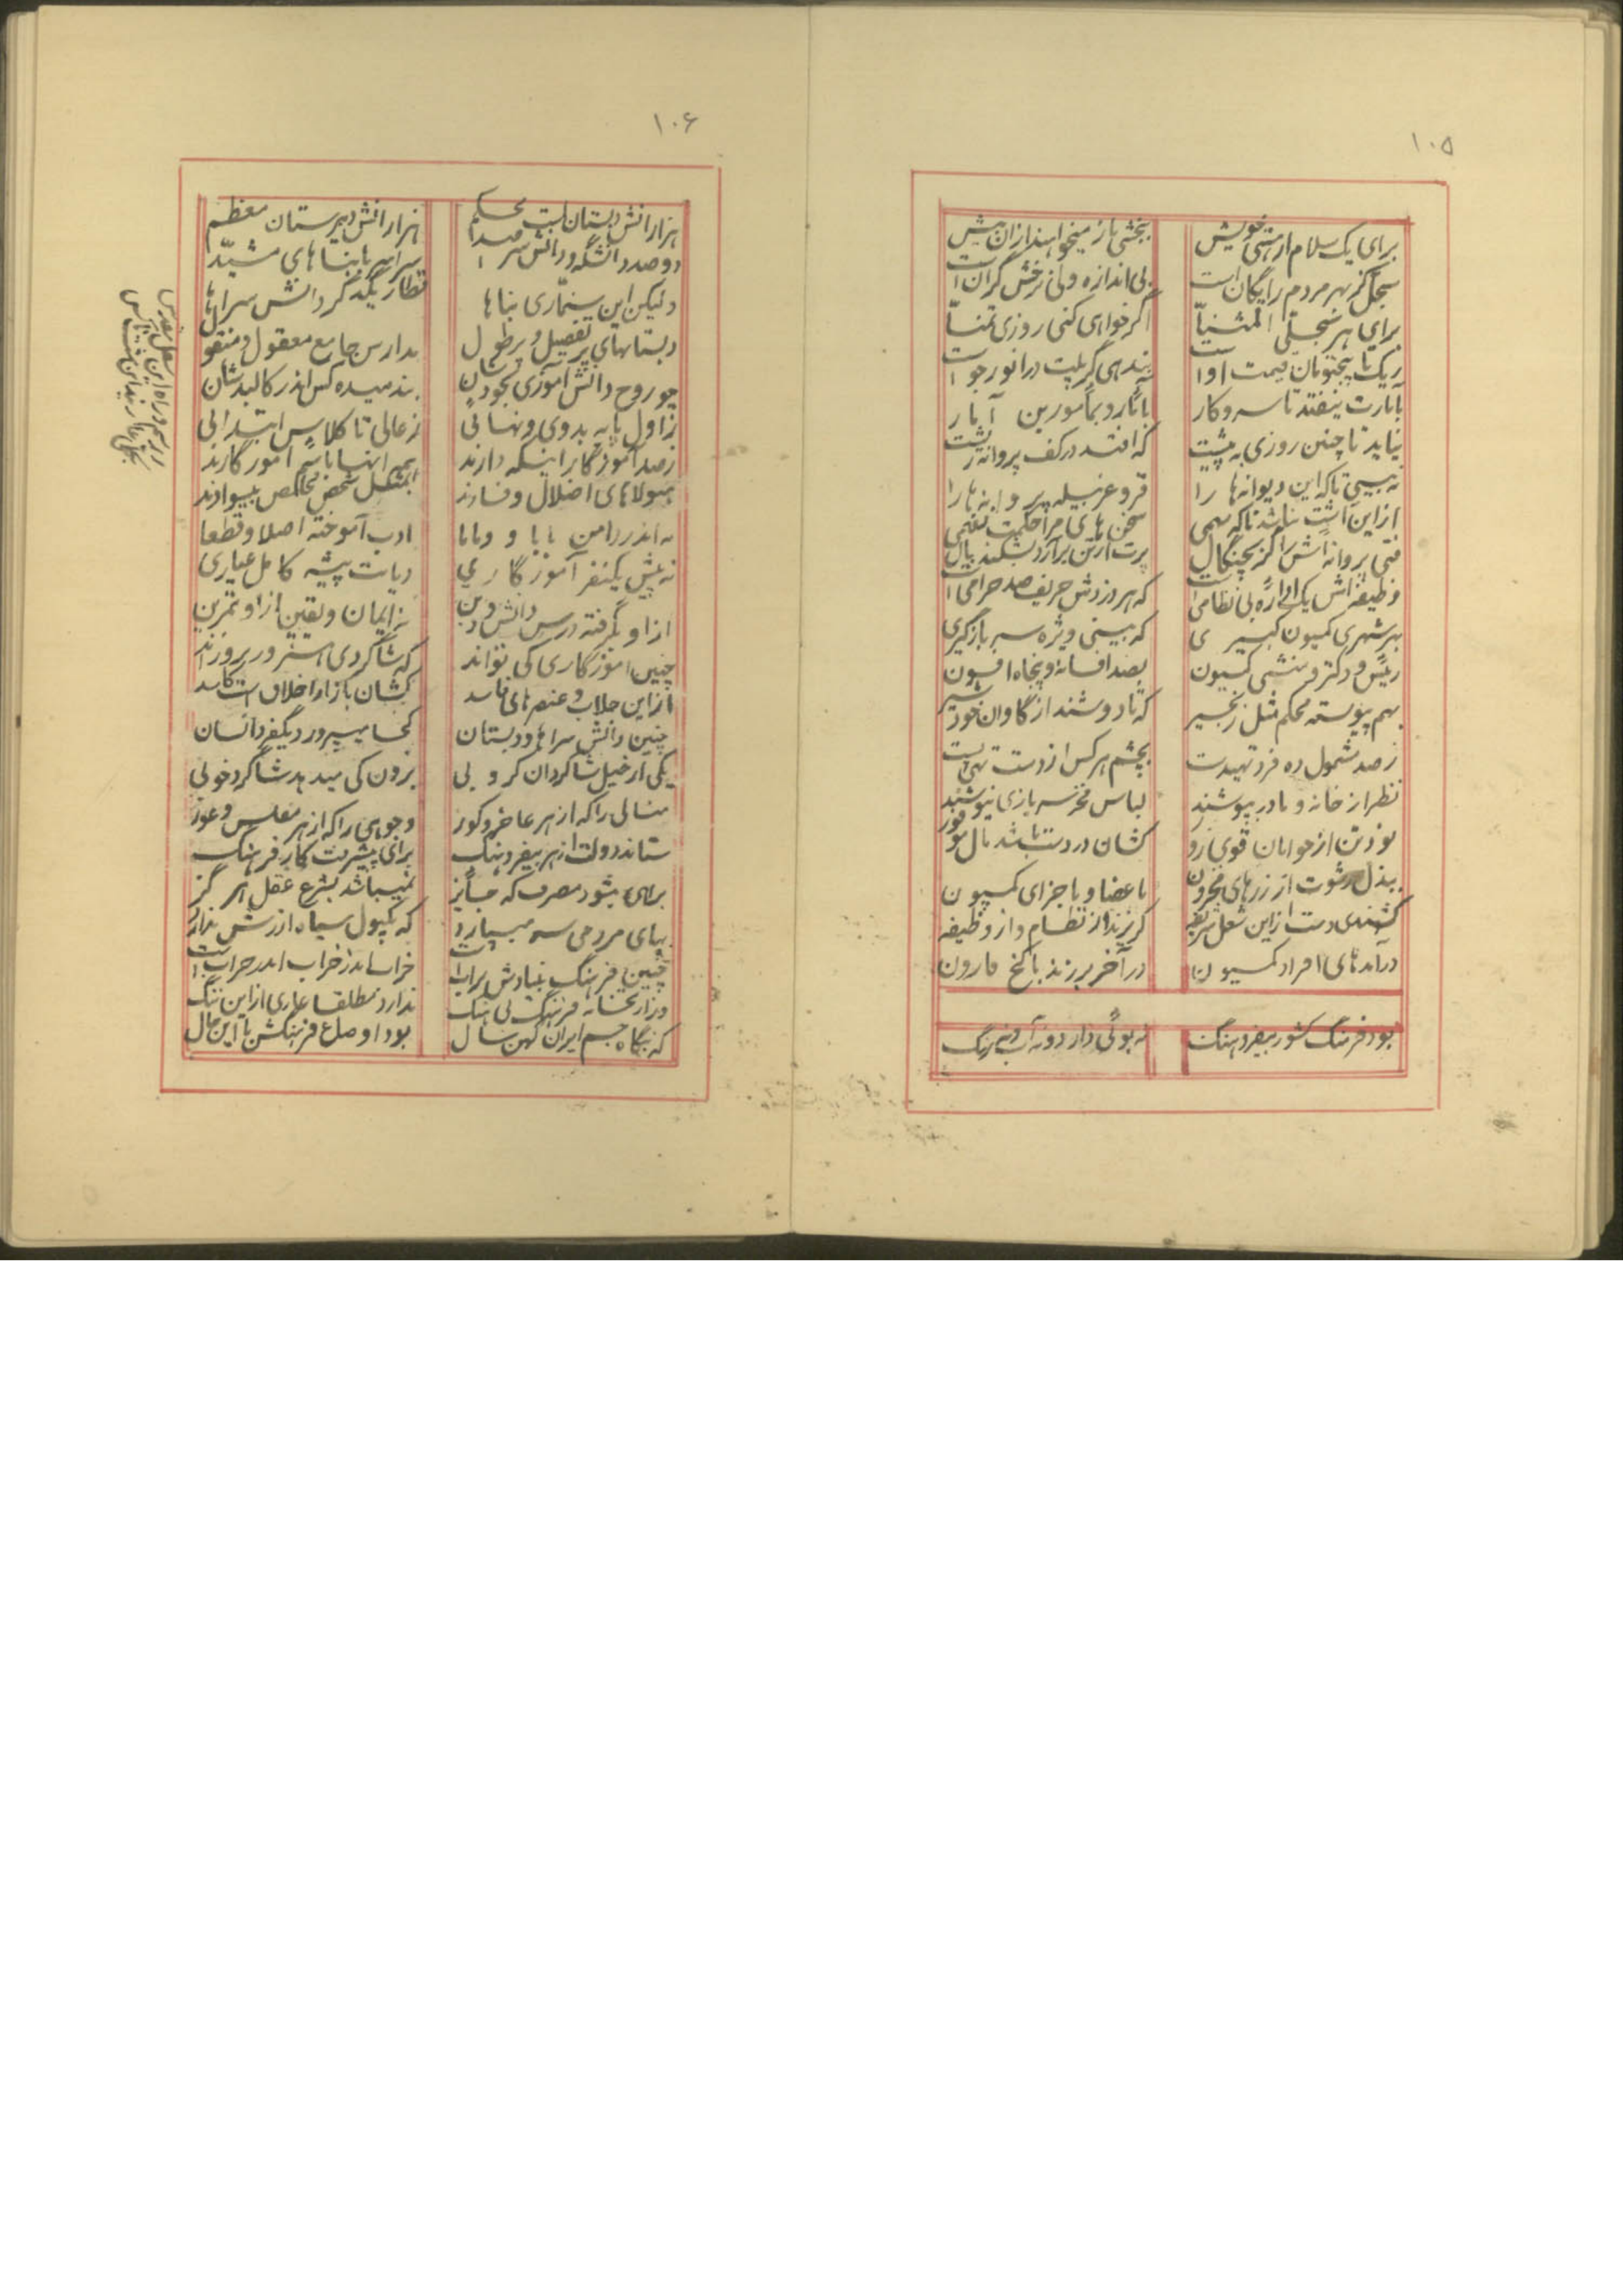 ١٠٥
برای یک سلام از هستی خویش
ببخشی باز میخواهند ازان بیش
سجل گر بهر مردم رایگان است
بی اندازه ولی نرخش گران است
برای هر سجلی المثنیّا
اگر خواهی کنی روزی تمنّا
ز یک تا پنجتومان قیمت اوست
بآمارت نیفتد تا سر و کار
بآمار و بمأمورین آمار
نیاید تا چنین روزی به پیشت
که افتد در کف پروانه ریشت
نه بینی تاکه این دیوانه ها را
از این باشد تاکه سهمی
سخن های مرا حکمت نفهمی
فتی پروانه اش را گر بچنگال
پرت از تن برآرد بشکند بال
وظیفه اش یک اداره بی نظامی است
که هر دزدش حریف صد حرامی است
بهر شهری کمیسیون کبیری
که بینی ویژه سربازگیری
رئیس و دکتر و منشی کمسیون
بصد افسانه و پنجاه افسون
بهم پیوسته محکم مثل زنجیر
که تا دوشند از گاوان خود شیر
ز صد مشمول ده فرد تهیدست
بچشم هر کس از دست تهی پست
نظر از خانه و مادر بپوشند
لباس فخر سربازی نیوشند
بود تن از جوانان قوی
کشان در دست باشد مال موفور
ببذل رشوت از زرهای مخزون
باعضا و باجزای کمسیون
کشندی دست از این شغل شریفه
گریزند از نظام و از وظیفه
درآمدهای افراد کمسیون
در آخر برزند با گنج قارون
بود فرهنگ کشور بیفر و هنگ
نه بوئی دارد و نه آب و نی رنگ
١٠۶
هزارانش دبستان است محکم
هزارانش دبیرستان معظم
دو صد دانشگه و دانش سرا
سراسر با بناهای مشیّد
ولیکن این سنمّاری بناها
قطار یکدگر دانش سراها
دبستانهای پر تفصیل و پر طول
مدارس جامع معقول و منقول
چو روح دانش آموزی بخودشان
ندمیده کس اندر کالبدشان
ز اول پایه بدوی و نهائی
ز عالی تا کلاس ابتدائی
ز صد آموزگار اینکه دارند
همه اینها باسم آموزگارند
هیولاهای اضلال و فسادند
بمشکل شخص مخلص بیسوادند
نه اندر دامن بابا و ماما
ادب آموخته اصلا و قطعا
نه پیش یکنفر آموزگاری
دیانت پیشه کامل عیاری
از او بگرفته درس دانش و دین
نه ایمان و یقین از او تمرین
چنین آموزگاری کی تواند
که شاگردی هنرور پروراند
از این جلاب و عنصرهای فاسد
کشان بازار اخلاق است کاسد
چنین دانش سراها و دبستان
کجا میپرورد یکنفر انسان
یکی از خیل شاگردان کر و
برون کی میدهد شاگرد خوبی
منالی را که از هر عاجز و کور
وجوهی را که از هر مفلس و عور
ستاند دولت از هر بیفر و هنگ
برای پیشرفت کار فرهنگ
برای بشود مصرف که جایز
نمیباشد بشرع عقل هرگز
بهای مردمی سه میسپارد
که یکپول سیاه ارزش ندارد
چنین فرهنگ بنیادش براب است
خراب اندر خراب اندر خراب است
وزارتخانه فرهنگ بی هنگ
ندارد مطلقا عاری از این ننگ
که بنگاه جم ایران کهن سال
بود اوضاع فرهنگش با این حال
در رسم و راه این شغل